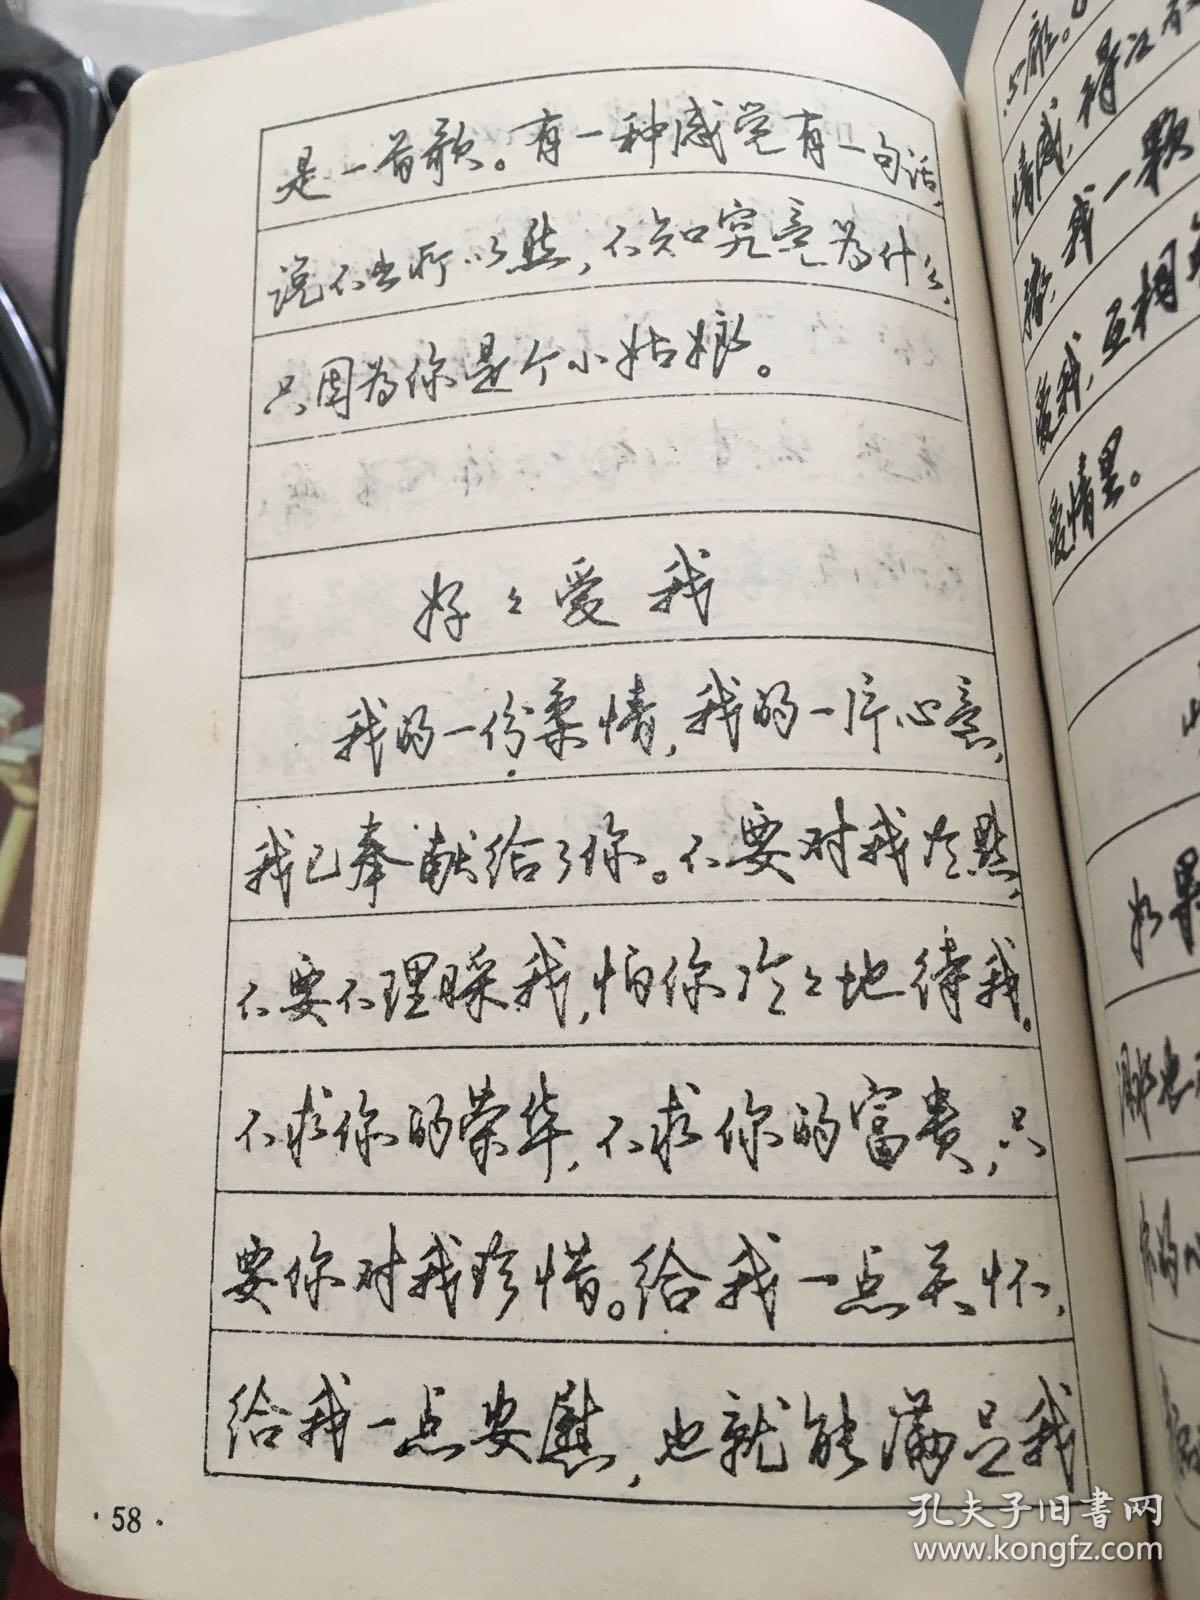 是一首歌。有一种感觉有一句话,
说不出所以然,不知究竟为什么,
只因为你是个小姑娘。
好々爱我
我的一份柔情,我的一片心意,
我已奉献给了你。不要对我冷默,
不要不理睬我,怕你冷々地待我。
不求你的荣华,不求你的富贵,只
要你对我珍惜。给我一点关怀,
给我一点安慰,也就能满足我
·58·
情感,得
我一颗
爱我,互相
爱情里。
如果
孔夫子旧书网
www.kongfz.com